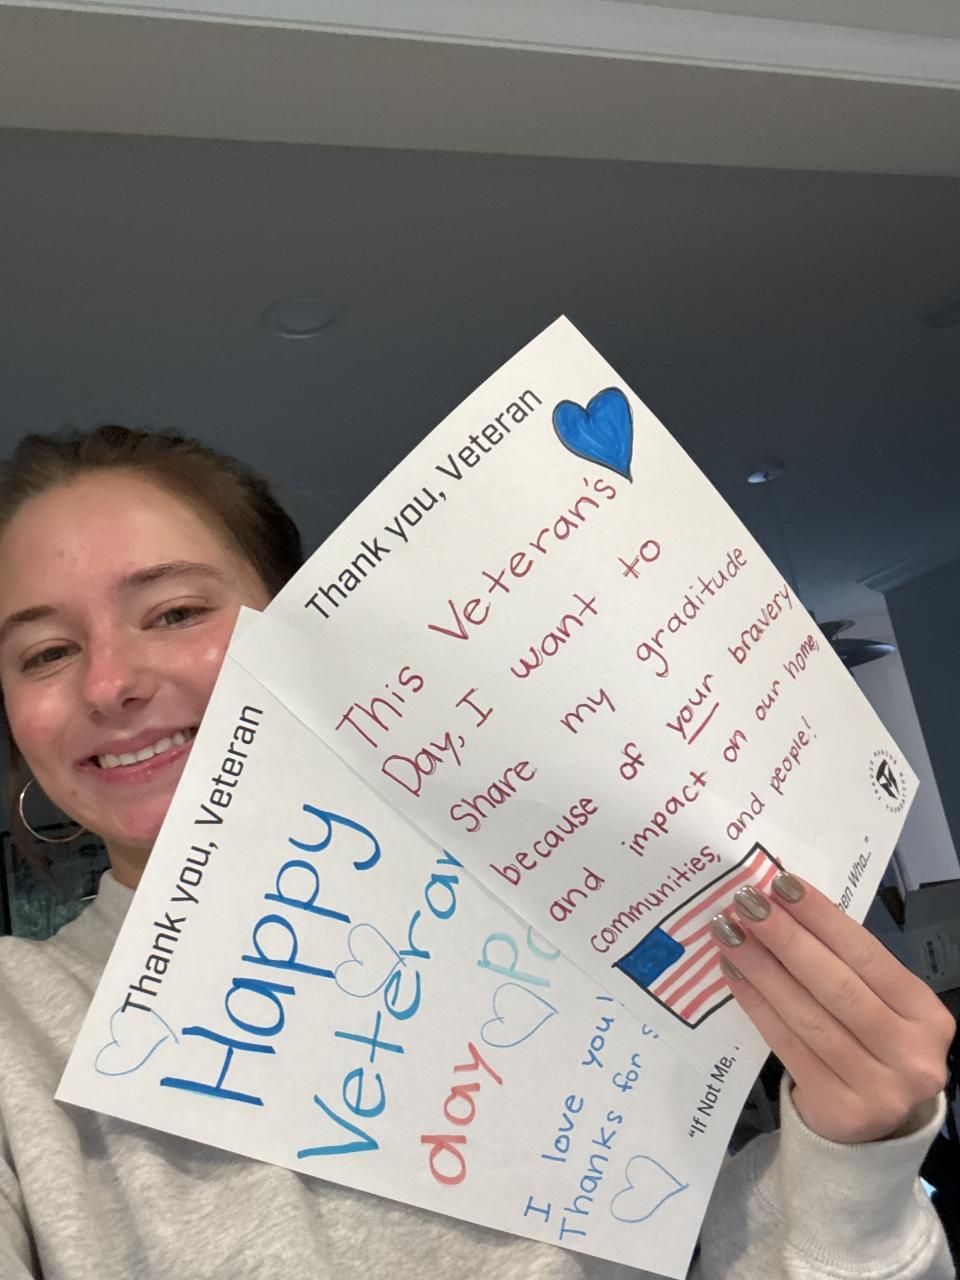 Thank you, Veteran
This Veteran's
Day, I want to
Share my graditude
because of your bravery
and impact on our home,
communities, and people!
Thank you, Veteran
Happy
Veteran
day
I love you!
Thanks for
"If Not Me,
Who..."
TRAVIS MANION FOUNDATION